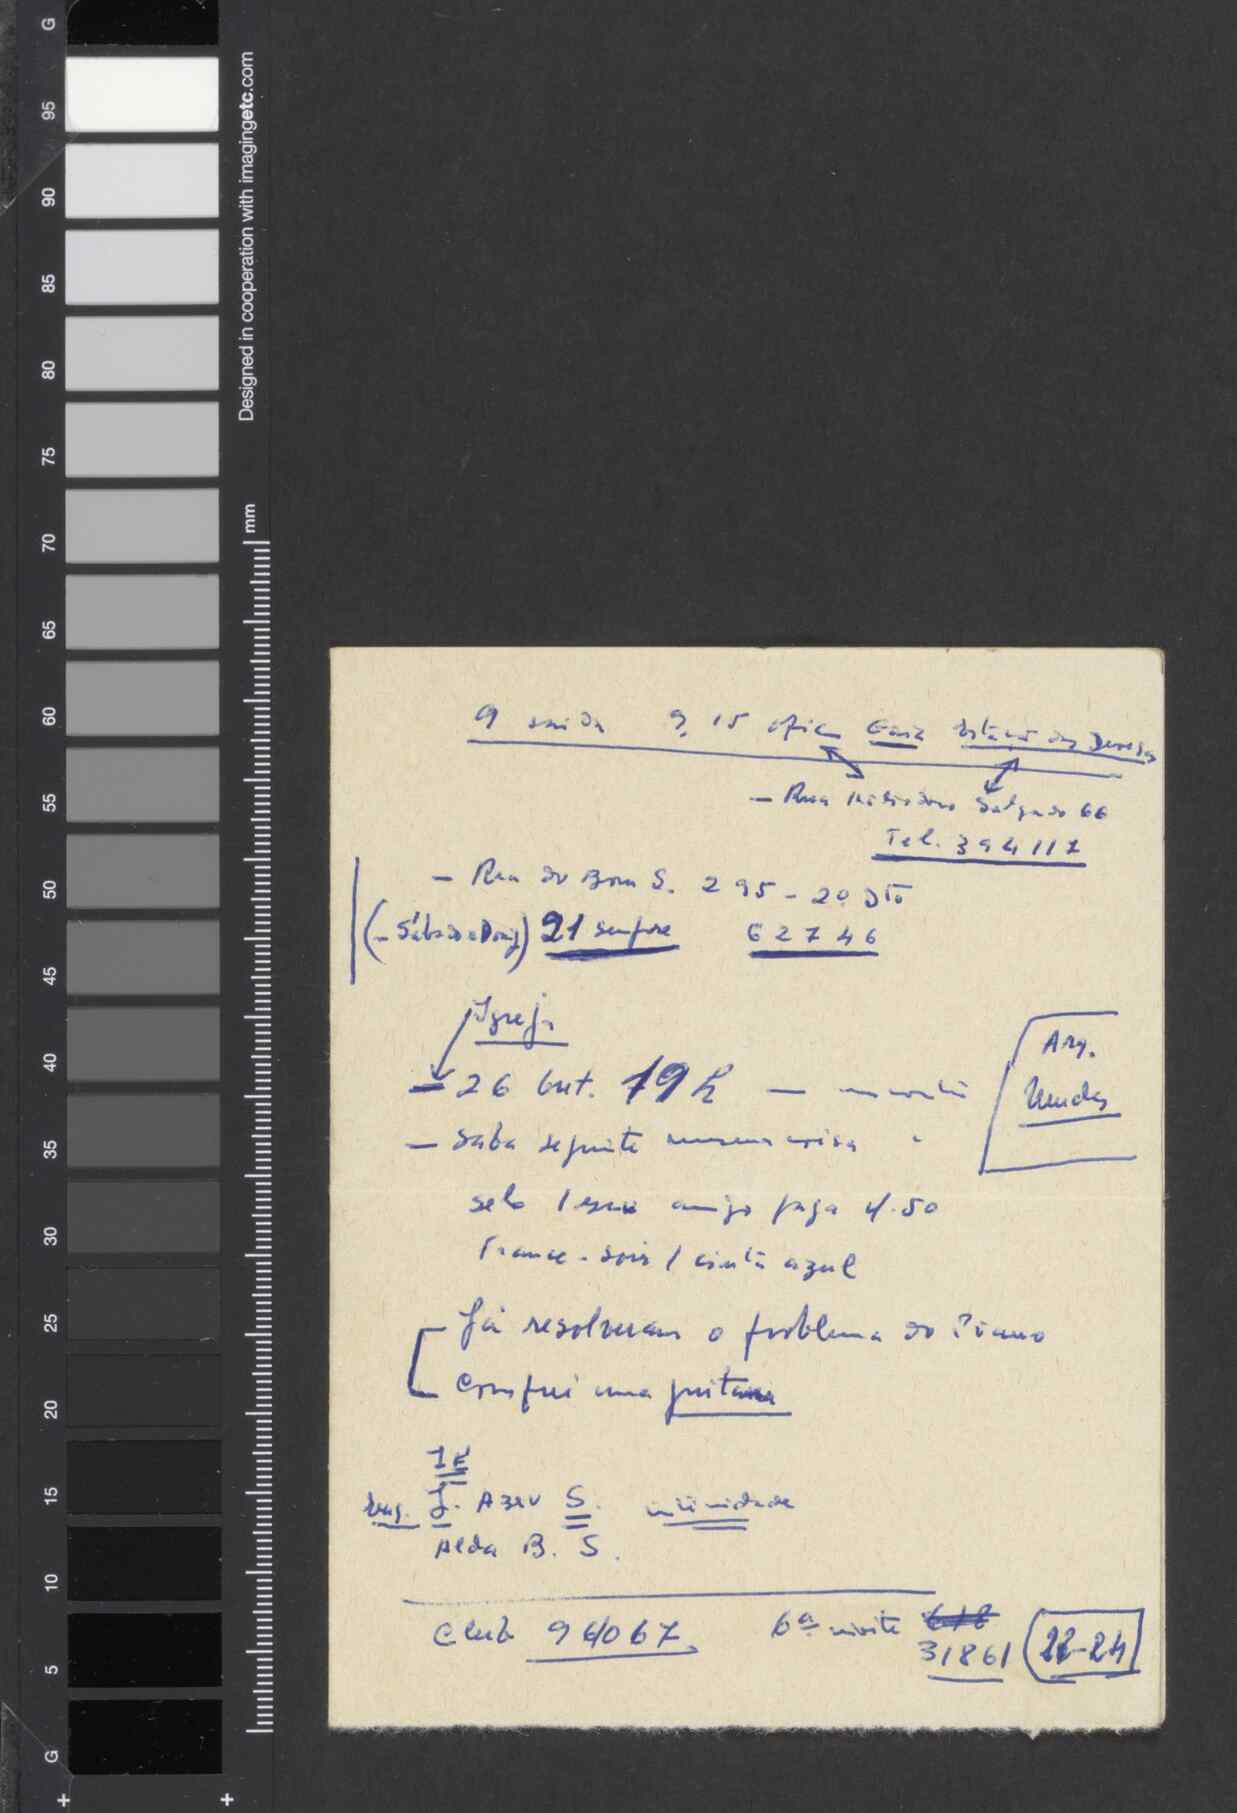 G
95
90
85
80
75
70
65
60
55
50
45
40
35
30
25
20
15
10
5
G
Designed in cooperation with imagingetc.com
mm
9 saida 9,15 ofic Gaia
— Rua Salgado 66
Tel. 394117
— Rua do Bom S. 295 - 2º Dtº
21 sempre 62746
Igreja
— 26 Out. 19 h —
Arq.
Mendes
— Saba seguinte
selo 1 amigo paga
France-soir / cinta azul
Já resolveram o problema do Piano
Consegui uma guitarra
Eng. J. Azev S. intimidade
Alda B. S.
Club 96067 6ª noite 618
31861 22-24